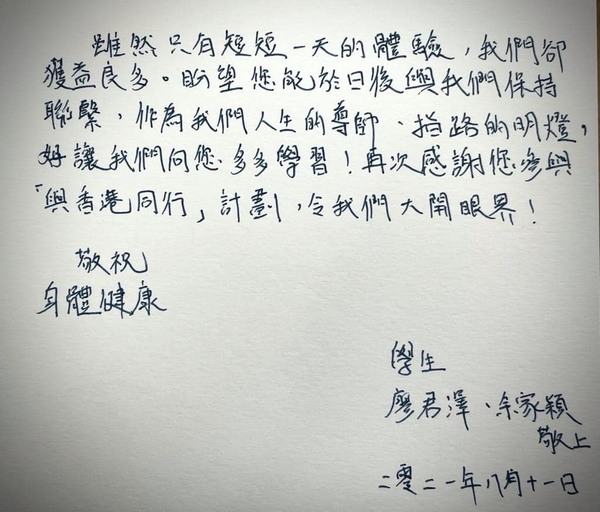 雖然只有短短一天的體驗，我們卻
獲益良多。盼望您能於日後與我們保持
聯繫，作為我們人生的導師、指路的明燈，
好讓我們向您多多學習！再次感謝您參與
「與香港同行」計劃，令我們大開眼界！
敬祝
身體健康
學生
廖君澤、佘家穎
敬上
二零二一年八月十一日